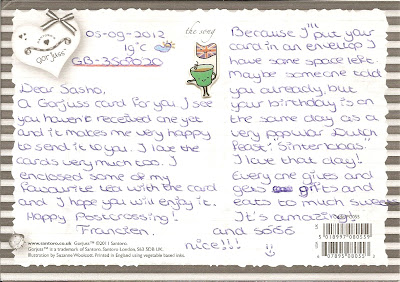 05-09-2012
19°C
GB-3509020
gorjuss
the song
Dear Sasha,
A Gorjuss card for you, I see
you haven't received one yet
and it makes me very happy
to send it to you. I love the
cards very much too. I
enclosed some of my
favourite tea with the card
and I hope you will enjoy it.
Happy Postcrossing!
Francien.
Because I'll put your
card in an envelop I
have some space left.
Maybe someone told
you already, but
your birthday is on
the same day as a
very popular Dutch
feast: "Sinterklaas"
I love that day!
Every one gives and
gets gifts and
eats to much sweets
It's amazing
and so so
nice!!! :)
www.santoro.co.uk Gorjuss™ ©2011 Santoro.
Gorjuss™ is a trademark of Santoro. Santoro, London, SE3 5DR UK.
Illustration by Suzanne Woolcott. Printed in England using vegetable based inks.